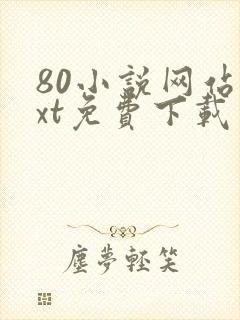 80小说网佔
xt免費下載
塵夢輕笑